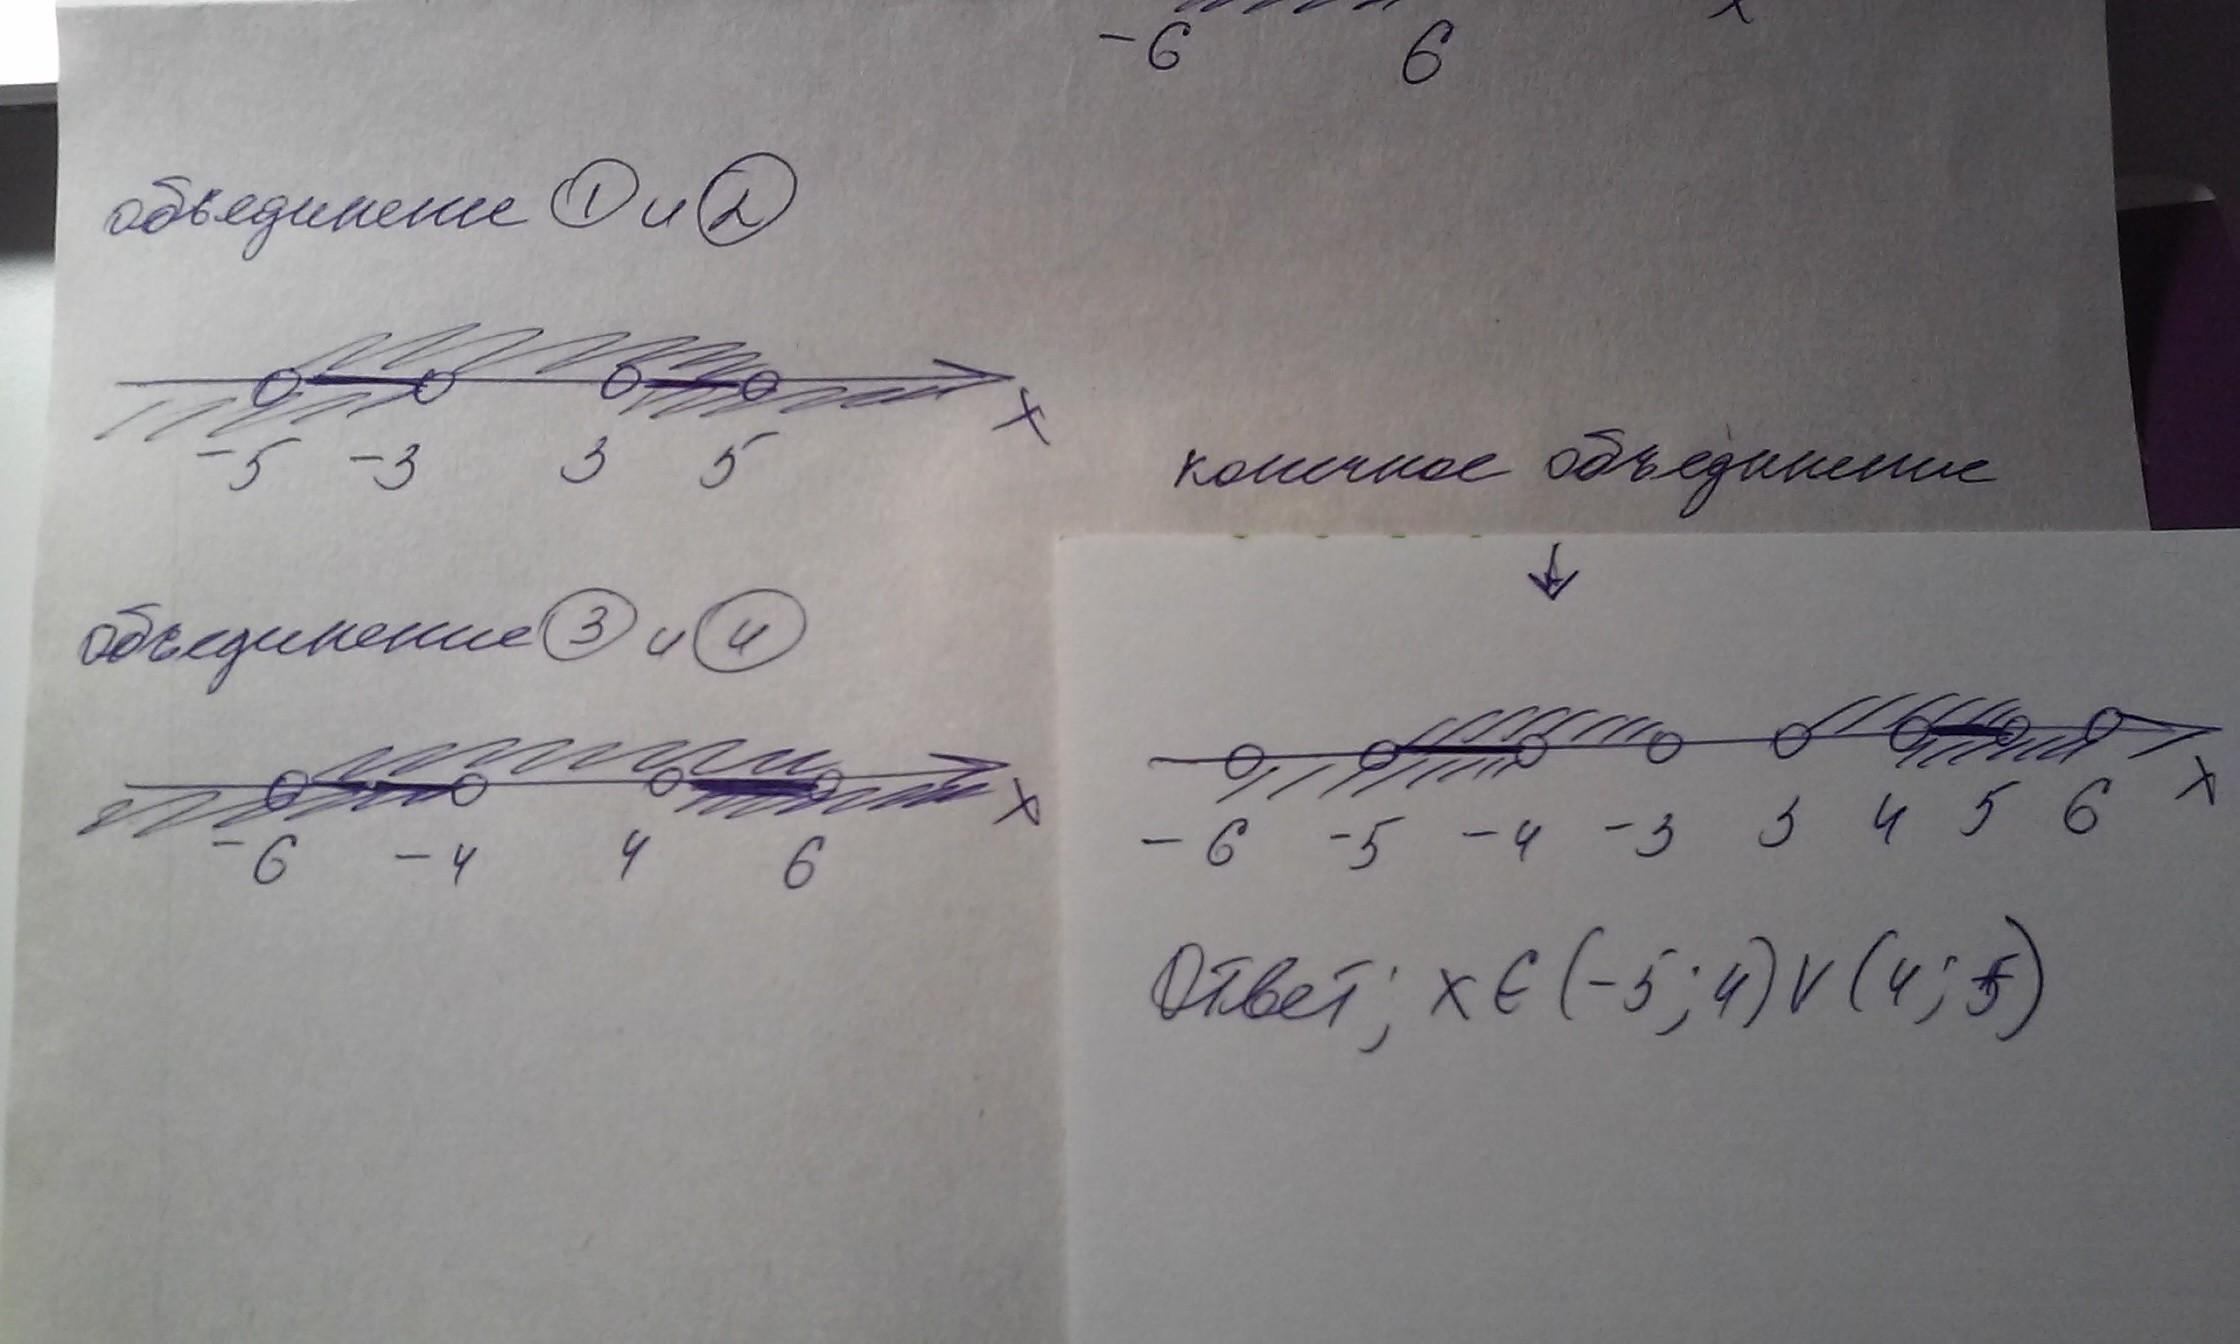 -6 6 x
объединение 1 и 2
-5 -3 3 5 x
объединение 3 и 4
-6 -4 4 6 x
конечное объединение
-6 -5 -4 -3 3 4 5 6 x
Ответ; x ∈ (-5; 4) ∨ (4; 5)